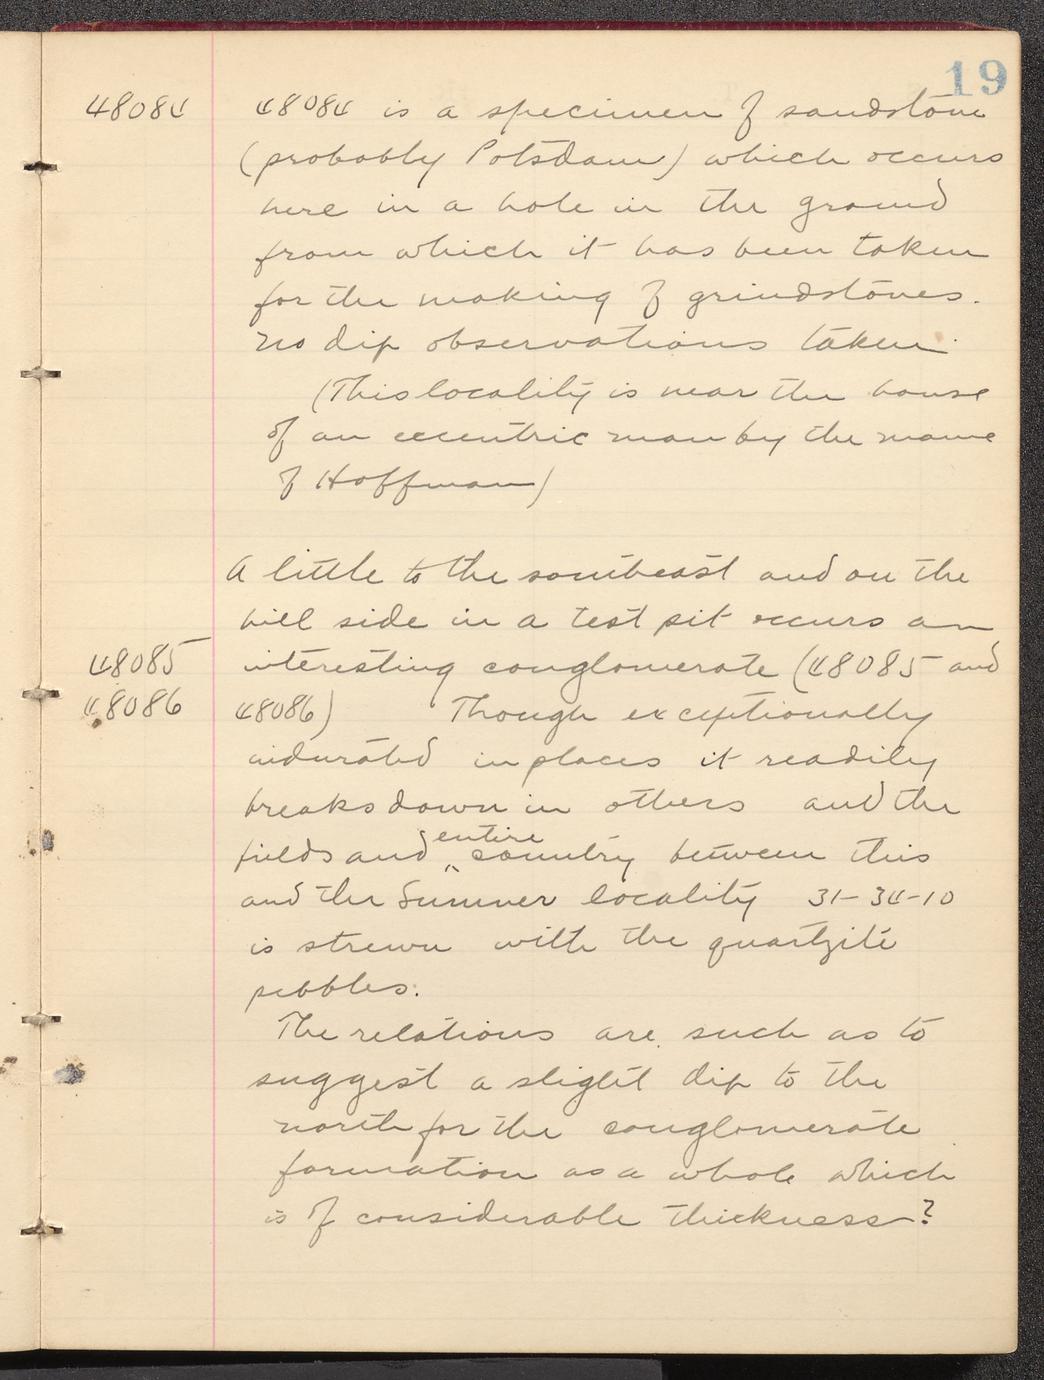 19
48084 48084 is a specimen of sandstone
(probably Potsdam) which occurs
here in a hole in the ground
from which it has been taken
for the making of grindstones.
no dip observations taken.
(This locality is near the house
of an eccentric man by the name
of Hoffman)
A little to the southeast and on the
hill side in a test pit occurs an
48085 interesting conglomerate (48085 and
48086 48086) Though exceptionally
indurated in places it readily
breaks down in others and the
fields and entire country between this
and the Sumner locality 31-34-10
is strewn with the quartzite
pebbles.
The relations are such as to
suggest a slight dip to the
north for the conglomerate
formation as a whole which
is of considerable thickness?